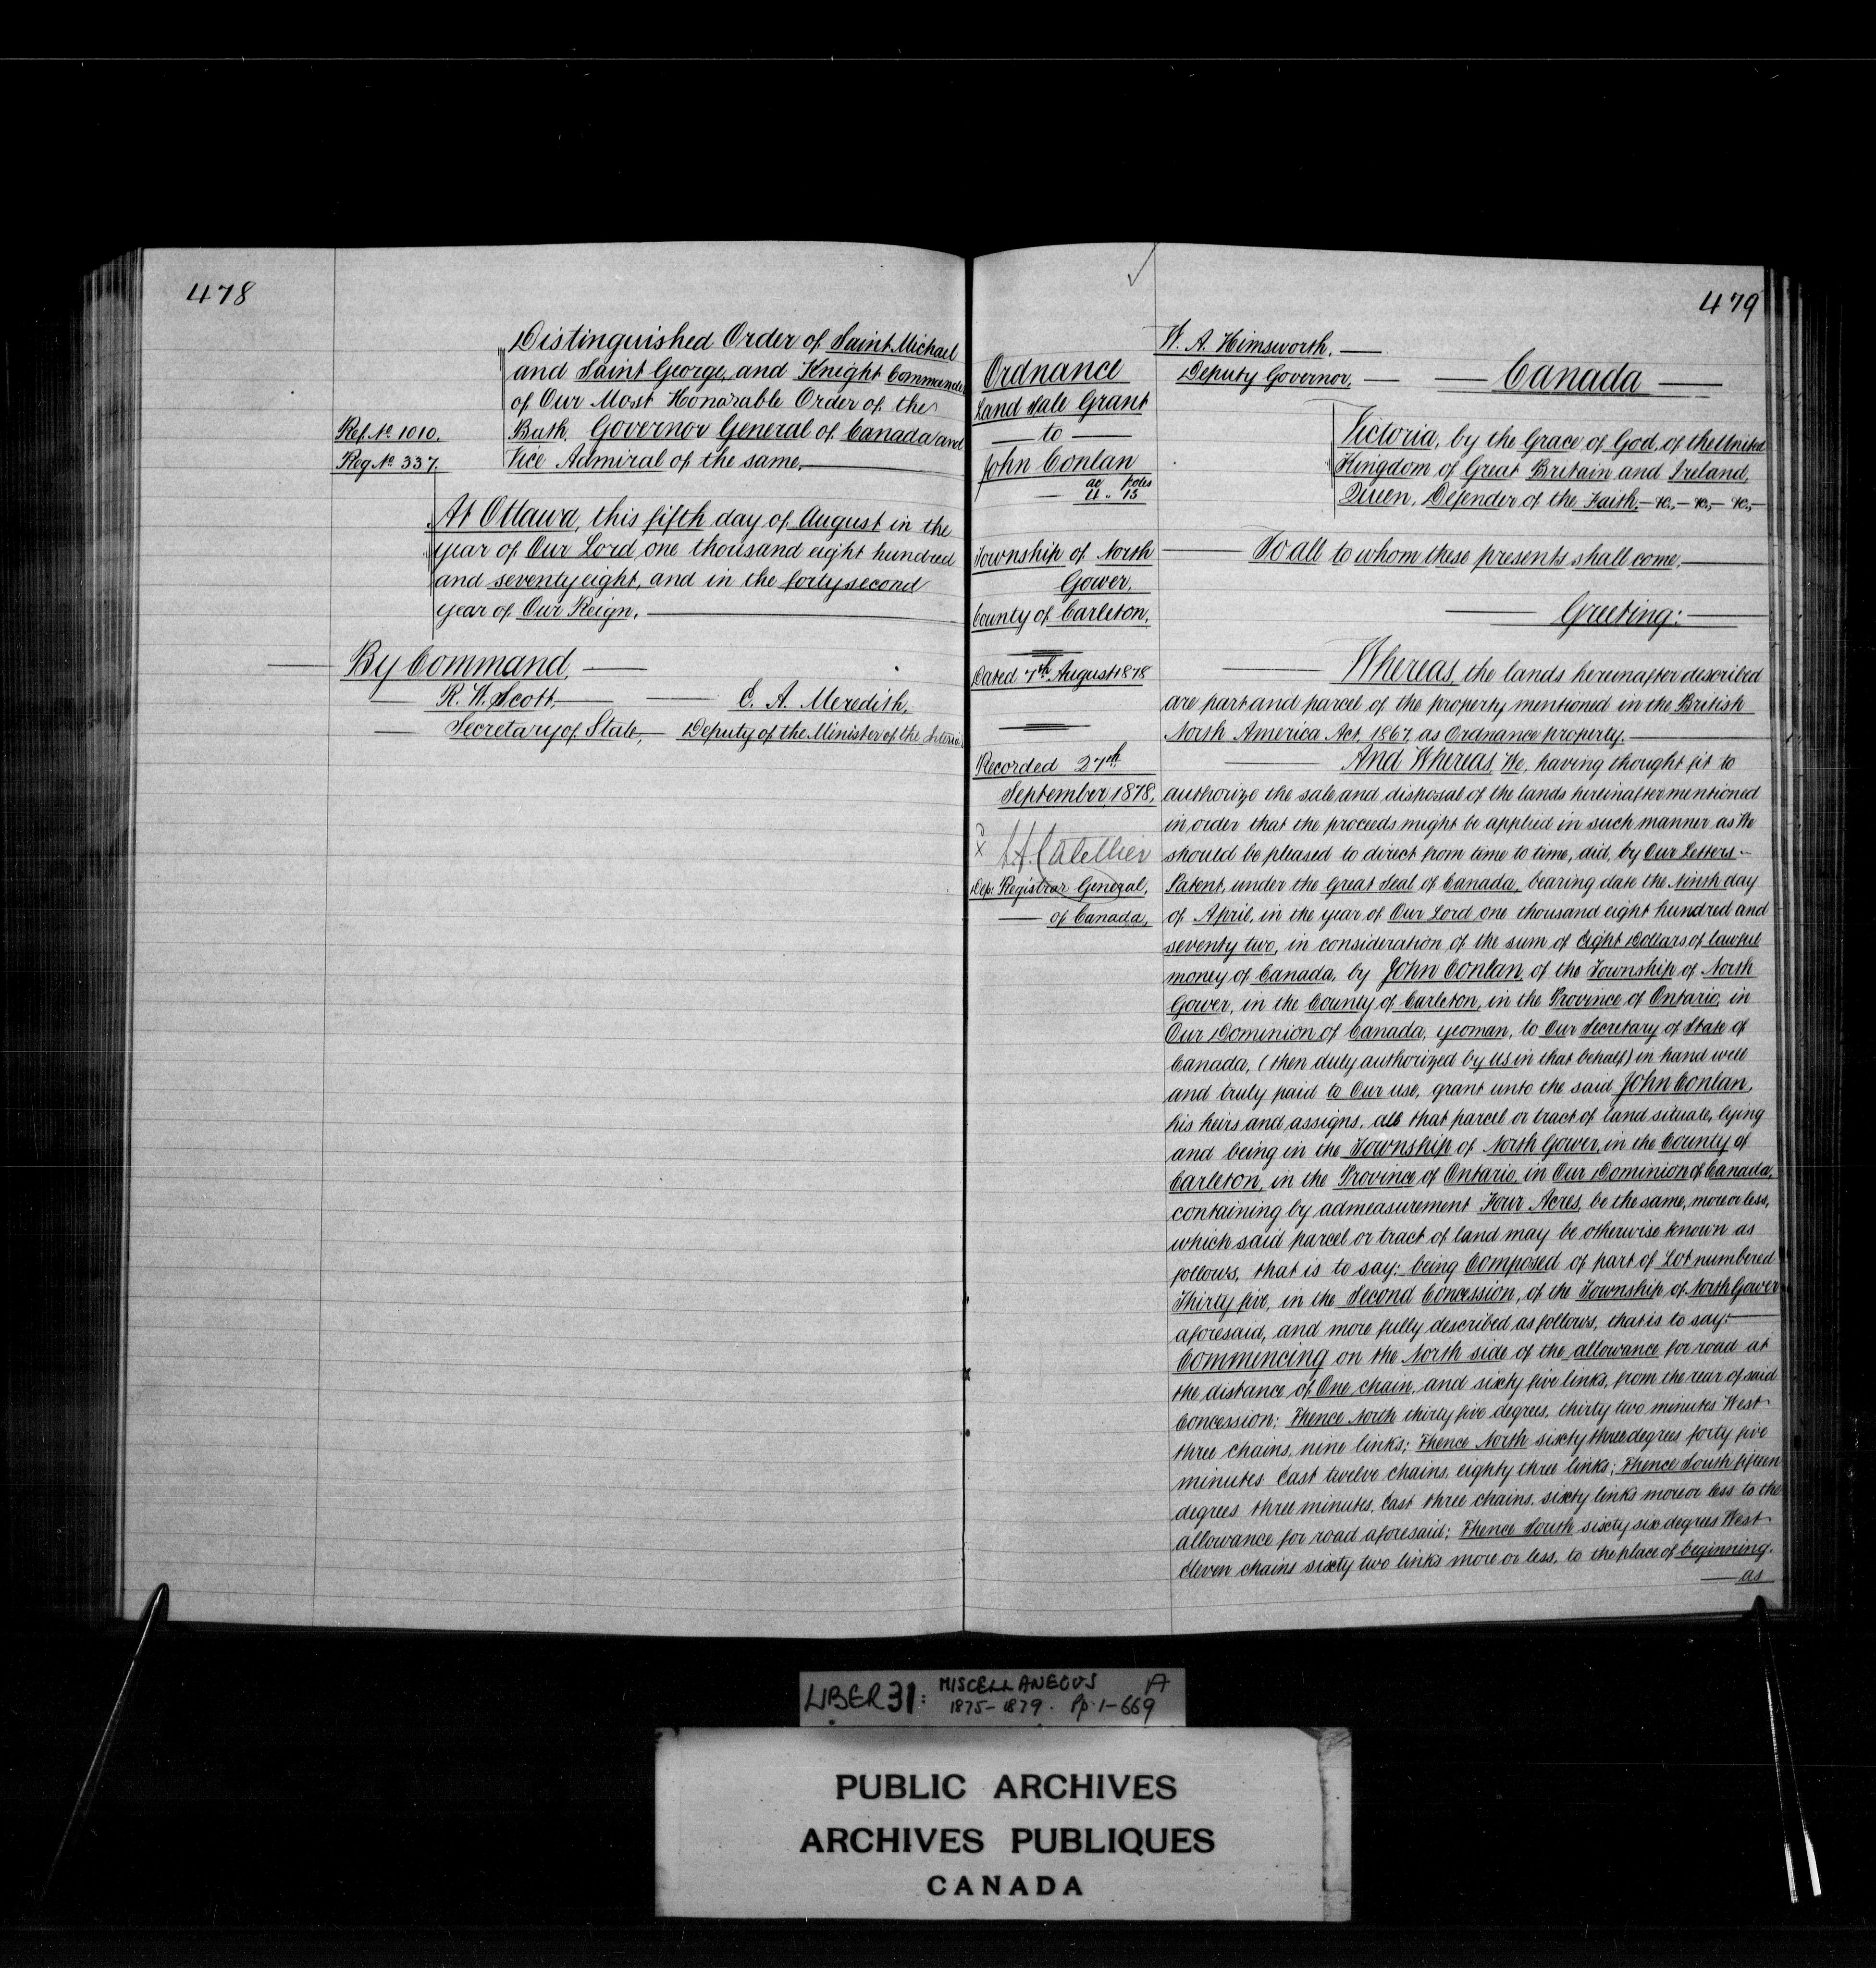 478
Distinguished Order of Saint Michael
and Saint George, and Knight Commander
of Our Most Honorable Order of the
Bath. Governor General of Canada and
Vice Admiral of the same.
Ref. No. 1010.
Reg No. 337.
At Ottawa, this fifth day of August in the
year of Our Lord one thousand eight hundred
and seventy eight, and in the forty second
year of Our Reign.
By Command,
R. W. Scott.
Secretary of State,
E. A. Meredith,
Deputy of the Minister of the Interior
479
Ordnance
Land Sale Grant
to
John Conlan
ac poles
13
Township of North
Gower.
County of Carleton.
Dated 7th August 1878
Recorded 27th
September 1878,
Catellier
Dep: Registrar General,
of Canada,
W. A. Himsworth.
Deputy Governor.
Canada
Victoria, by the Grace of God, of the United
Kingdom of Great Britain and Ireland,
Queen, Defender of the Faith. &c, &c, &c,
To all to whom these presents shall come,
Greeting:
Whereas, the lands hereinafter described
are part and parcel of the property mentioned in the British
North America Act, 1867, as Ordnance property.
And Whereas, We, having thought fit to
authorize the sale and disposal of the lands hereinafter mentioned
in order that the proceeds might be applied in such manner as We
should be pleased to direct from time to time, did, by Our Letters
Patent, under the Great Seal of Canada, bearing date the Ninth day
of April, in the year of Our Lord one thousand eight hundred and
seventy two, in consideration of the sum of Eight Dollars of lawful
money of Canada, by John Conlan, of the Township of North
Gower, in the County of Carleton, in the Province of Ontario, in
Our Dominion of Canada, yeoman, to Our Secretary of State of
Canada, (then duly authorized by us in that behalf) in hand well
and truly paid to Our use, grant unto the said John Conlan,
his heirs and assigns, all that parcel or tract of land situate, lying
and being in the Township of North Gower, in the County of
Carleton, in the Province of Ontario, in Our Dominion of Canada,
containing by admeasurement Four Acres, be the same, more or less,
which said parcel or tract of land may be otherwise known as
follows, that is to say: being Composed of part of Lot numbered
Thirty five, in the Second Concession, of the Township of North Gower
aforesaid, and more fully described as follows, that is to say:
Commencing on the North side of the allowance for road at
the distance of One chain, and sixty five links, from the rear of said
Concession; Thence North thirty five degrees, thirty two minutes West
three chains, nine links; Thence North sixty three degrees forty five
minutes East twelve chains, eighty three links; Thence South fifteen
degrees three minutes, East three chains, sixty links more or less to the
allowance for road aforesaid; Thence South sixty six degrees West
Eleven chains sixty two links more or less, to the place of beginning.
as
LIBER 31: MISCELLANEOUS A
1875-1879. Pp. 1-669
PUBLIC ARCHIVES
ARCHIVES PUBLIQUES
CANADA